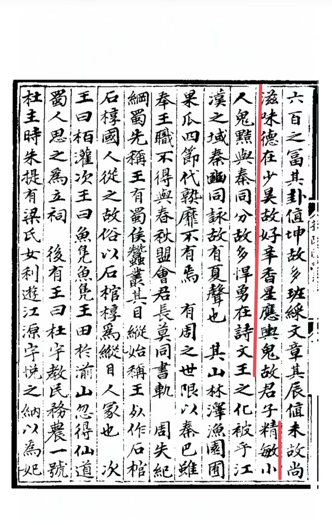 六百之富其卦值坤故多班綵文章其辰值未故尚
滋味德在少昊故好辛香星應輿鬼故君子精敏小
人鬼黠與秦同分故多悍勇在詩文王之化被乎江
漢之域秦豳同詠故有夏聲也 其山林澤漁園囿
果瓜四節代熟靡不有焉 有周之世限以秦巴雖
奉王職不得與春秋盟會君長莫同書軌 周失紀
綱蜀先稱王有蜀侯蠶叢其目縱始稱王死作石棺
石椁國人從之故俗以石棺椁爲縱目人冢也 次
王曰柏灌次王曰魚鳧魚鳧王田於湔山忽得仙道
蜀人思之爲立祠 後有王曰杜宇教民務農一號
杜主時朱提有梁氏女利遊江源宇悅之納以爲妃